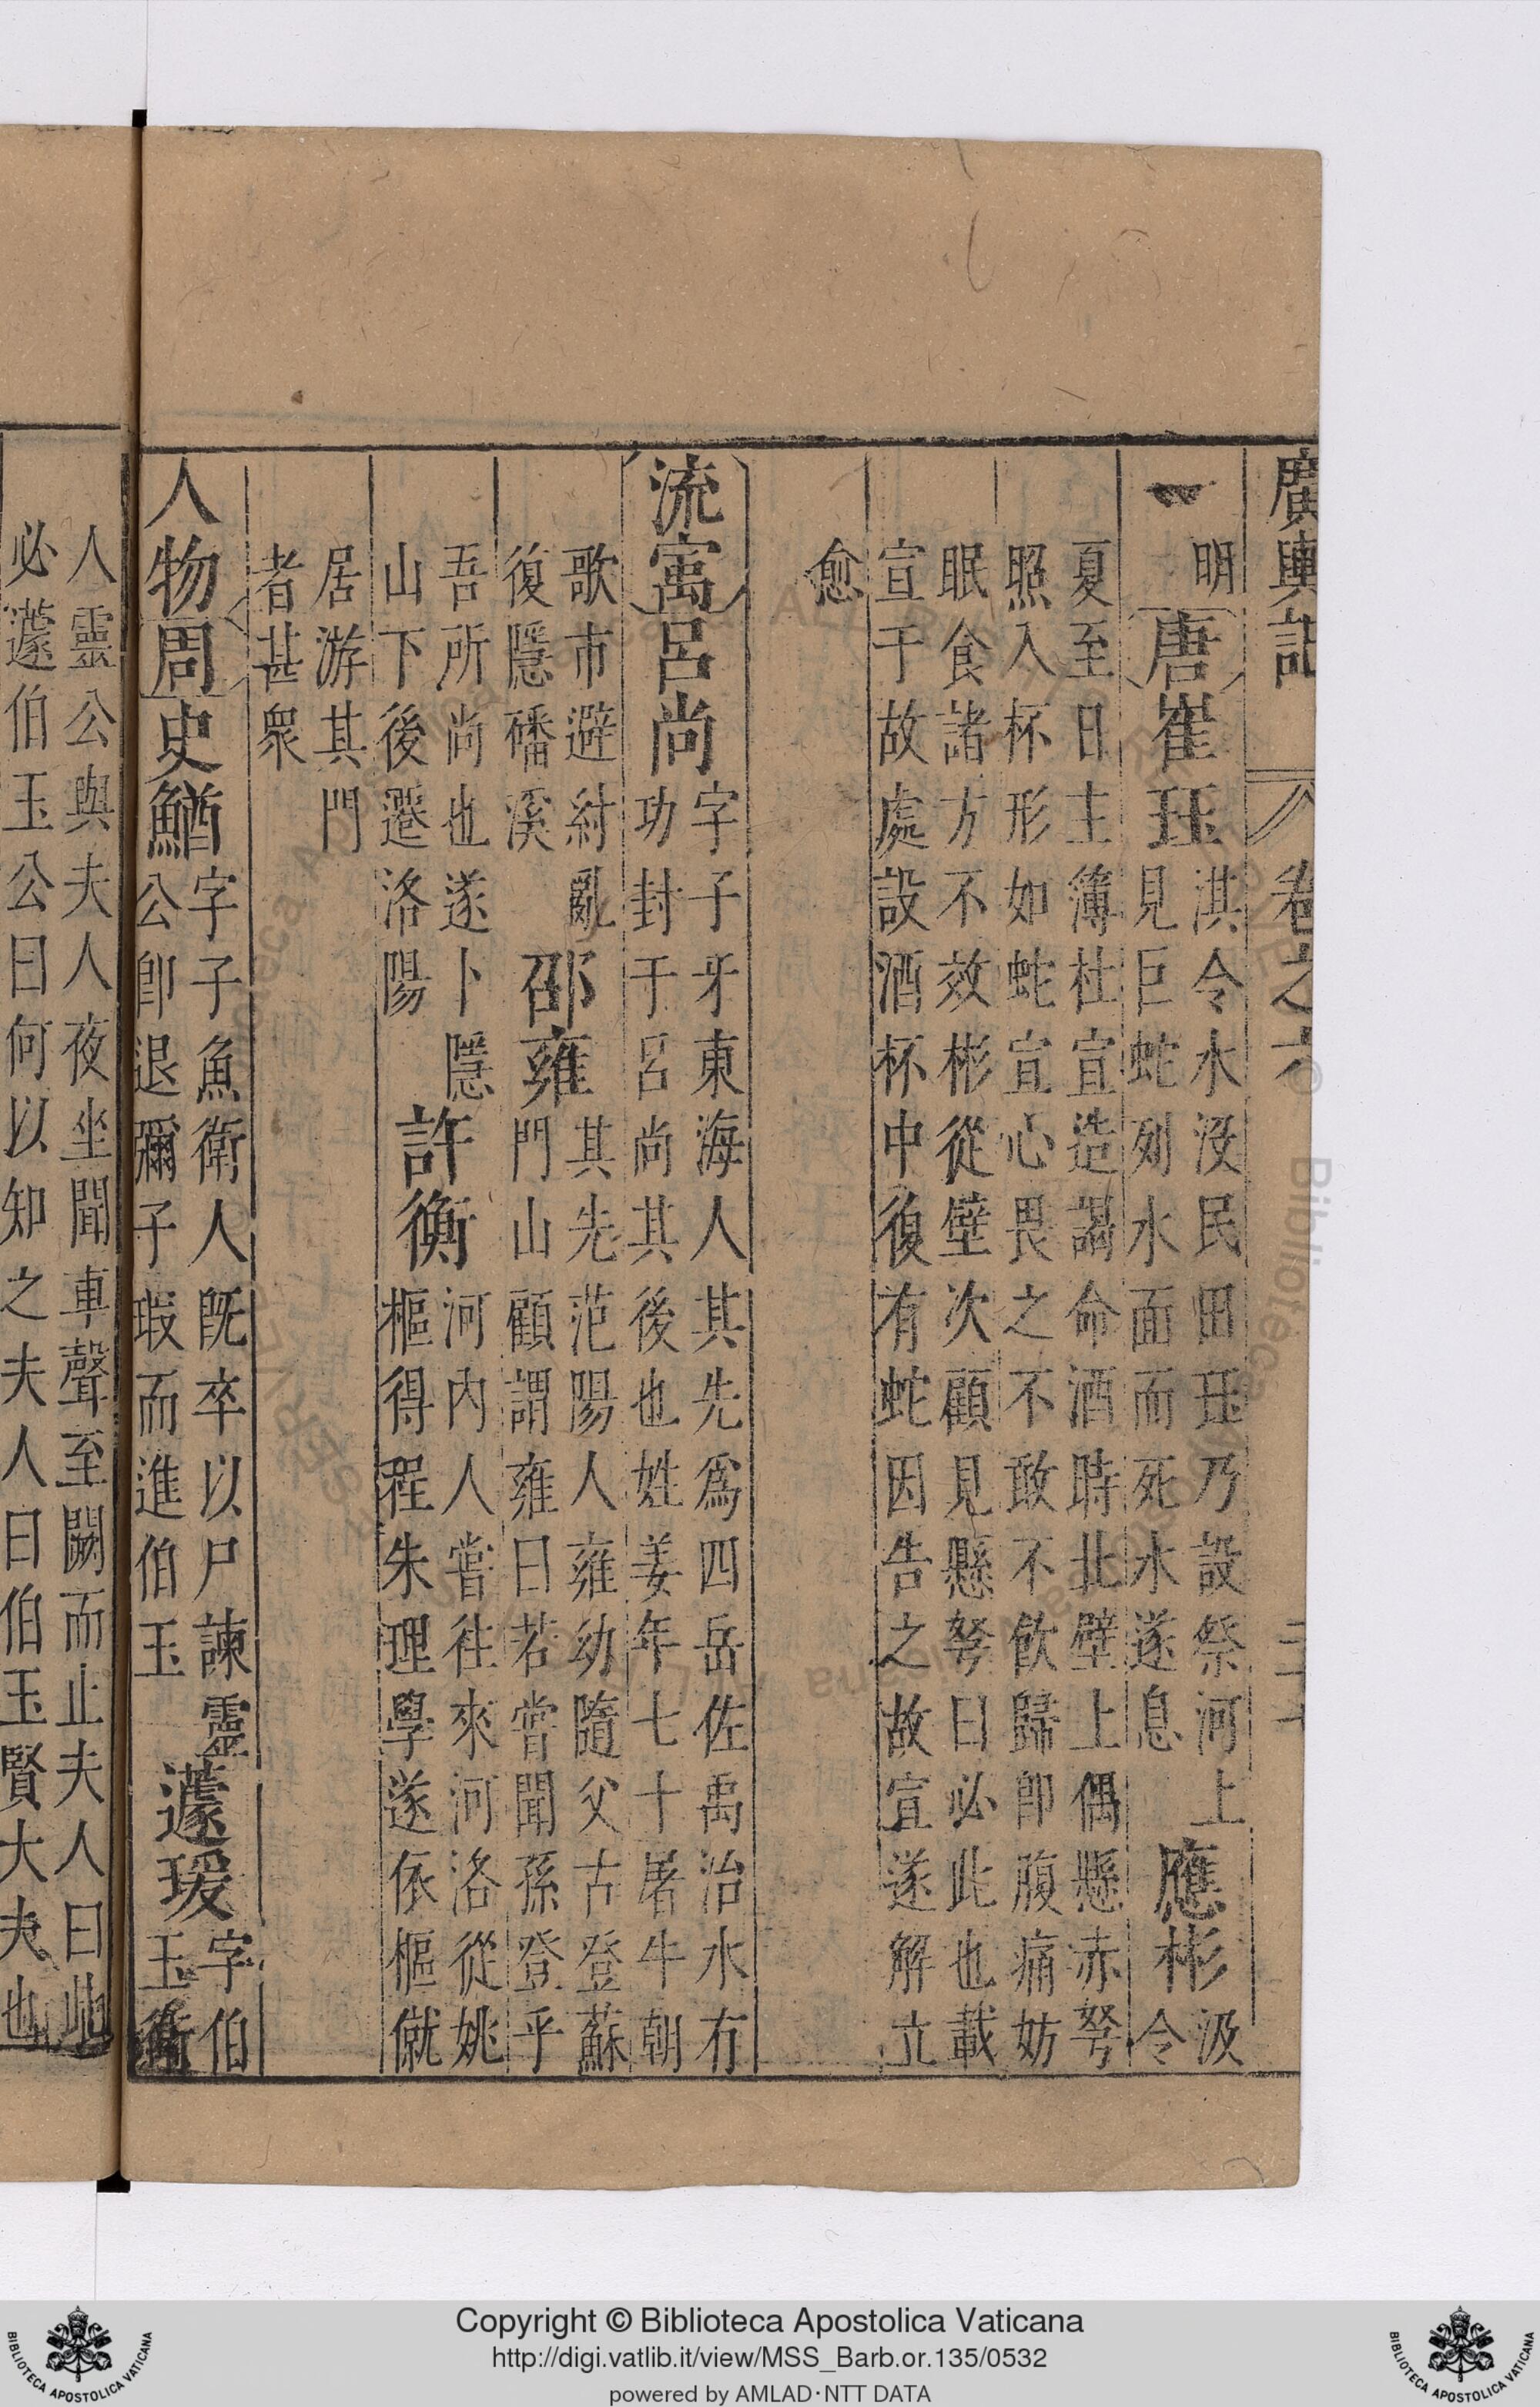 廣輿記　卷之六
明
唐　崔珏
淇令水沒民田珏乃設祭河上
見巨蛇列水面而死水遂息
應彬
汲
令
夏至日主簿杜宣造謁命酒時北壁上偶懸赤弩
照入杯形如蛇宣心畏之不敢不飲歸卽腹痛妨
眠食諸方不效彬從壁次顧見懸弩曰必此也載
宣于故處設酒杯中復有蛇因告之故宣遂解立
愈
流寓　呂尚
字子牙東海人其先爲四岳佐禹治水有
功封于呂尚其後也姓姜年七十屠牛朝
歌市避紂亂
復隱磻溪
邵雍
其先范陽人雍幼隨父古登蘇
門山顧謂雍曰若嘗聞孫登乎
吾所尚也遂卜隱
山下後遷洛陽
許衡
河内人嘗往來河洛從姚
樞得程朱理學遂依樞僦
居游其門
者甚衆
人物　周　史鰌
字子魚衛人旣卒以尸諫靈
公卽退彌子瑕而進伯玉
蘧瑗
字伯
玉衛
人靈公與夫人夜坐聞車聲至闕而止夫人曰此
必蘧伯玉公曰何以知之夫人曰伯玉賢大夫也
Copyright © Biblioteca Apostolica Vaticana
http://digi.vatlib.it/view/MSS_Barb.or.135/0532
powered by AMLAD·NTT DATA
BIBLIOTECA APOSTOLICA VATICANA
BIBLIOTECA APOSTOLICA VATICANA